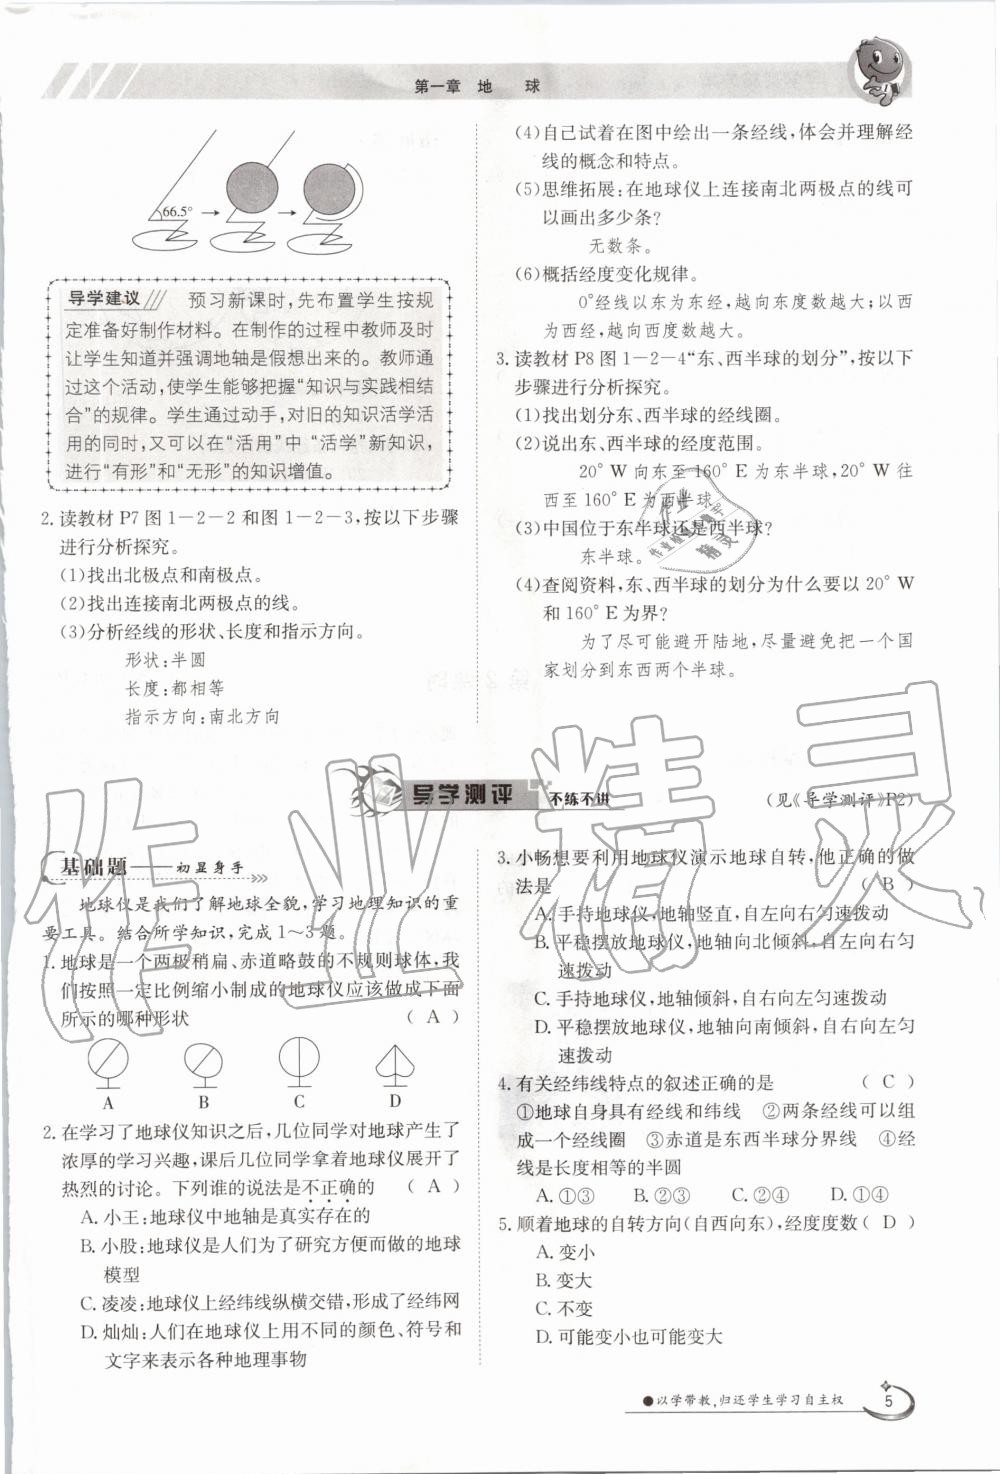 第一章 地 球
66.5°
导学建议 预习新课时,先布置学生按规
定准备好制作材料。在制作的过程中教师及时
让学生知道并强调地轴是假想出来的。教师通
过这个活动,使学生能够把握“知识与实践相结
合”的规律。学生通过动手,对旧的知识活学活
用的同时,又可以在“活用”中“活学”新知识,
进行“有形”和“无形”的知识增值。
2. 读教材 P7 图 1-2-2 和图 1-2-3,按以下步骤
进行分析探究。
(1)找出北极点和南极点。
(2)找出连接南北两极点的线。
(3)分析经线的形状、长度和指示方向。
形状:半圆
长度:都相等
指示方向:南北方向
(4)自己试着在图中绘出一条经线,体会并理解经
线的概念和特点。
(5)思维拓展:在地球仪上连接南北两极点的线可
以画出多少条?
无数条。
(6)概括经度变化规律。
0°经线以东为东经,越向东度数越大;以西
为西经,越向西度数越大。
3. 读教材 P8 图 1-2-4“东、西半球的划分”,按以下
步骤进行分析探究。
(1)找出划分东、西半球的经线圈。
(2)说出东、西半球的经度范围。
20° W 向东至 160° E 为东半球,20° W 往
西至 160° E 为西半球。
(3)中国位于东半球还是西半球?
东半球。
(4)查阅资料,东、西半球的划分为什么要以 20° W
和 160° E 为界?
为了尽可能避开陆地,尽量避免把一个国
家划分到东西两个半球。
导学测评 不练不讲 (见《导学测评》P2)
基础题——初显身手
地球仪是我们了解地球全貌,学习地理知识的重
要工具。结合所学知识,完成 1~3 题。
1. 地球是一个两极稍扁、赤道略鼓的不规则球体,我
们按照一定比例缩小制成的地球仪应该做成下面
所示的哪种形状 ( A )
A B C D
2. 在学习了地球仪知识之后,几位同学对地球产生了
浓厚的学习兴趣,课后几位同学拿着地球仪展开了
热烈的讨论。下列谁的说法是不正确的 ( A )
A. 小王:地球仪中地轴是真实存在的
B. 小股:地球仪是人们为了研究方便而做的地球
模型
C. 凌凌:地球仪上经纬线纵横交错,形成了经纬网
D. 灿灿:人们在地球仪上用不同的颜色、符号和
文字来表示各种地理事物
3. 小畅想要利用地球仪演示地球自转,他正确的做
法是 ( B )
A. 手持地球仪,地轴竖直,自左向右匀速拨动
B. 平稳摆放地球仪,地轴向北倾斜,自左向右匀
速拨动
C. 手持地球仪,地轴倾斜,自右向左匀速拨动
D. 平稳摆放地球仪,地轴向南倾斜,自右向左匀
速拨动
4. 有关经纬线特点的叙述正确的是 ( C )
①地球自身具有经线和纬线 ②两条经线可以组
成一个经线圈 ③赤道是东西半球分界线 ④经
线是长度相等的半圆
A. ①③ B. ②③ C. ②④ D. ①④
5. 顺着地球的自转方向(自西向东),经度度数( D )
A. 变小
B. 变大
C. 不变
D. 可能变小也可能变大
●以学带教,归还学生学习自主权 5
作业精灵